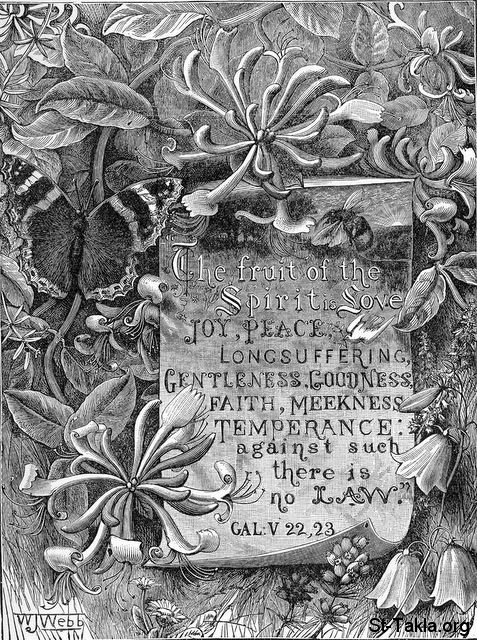 The fruit of the
Spirit is Love
JOY, PEACE,
LONGSUFFERING,
GENTLENESS, GOODNESS,
FAITH, MEEKNESS,
TEMPERANCE:
against such
there is
no LAW."
GAL: V 22, 23
WJ Webb
St-Takla.org